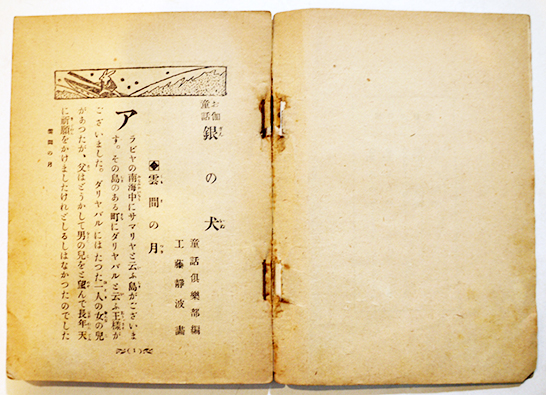 お伽童話
銀の犬
童話倶樂部編
工藤靜波畫
◆雲間の月
アラビヤの南海中にサマリヤと云ふ島がございま
す。その島のある町にダリヤバルと云ふ王様が
ございました。ダリヤバルにはたつた二人の女の兒
があつたが、父はどうかして男の兒をと望んで長年天
に祈願をかけましたけれどしるしはなかつたのでした
雲間の月
(1)